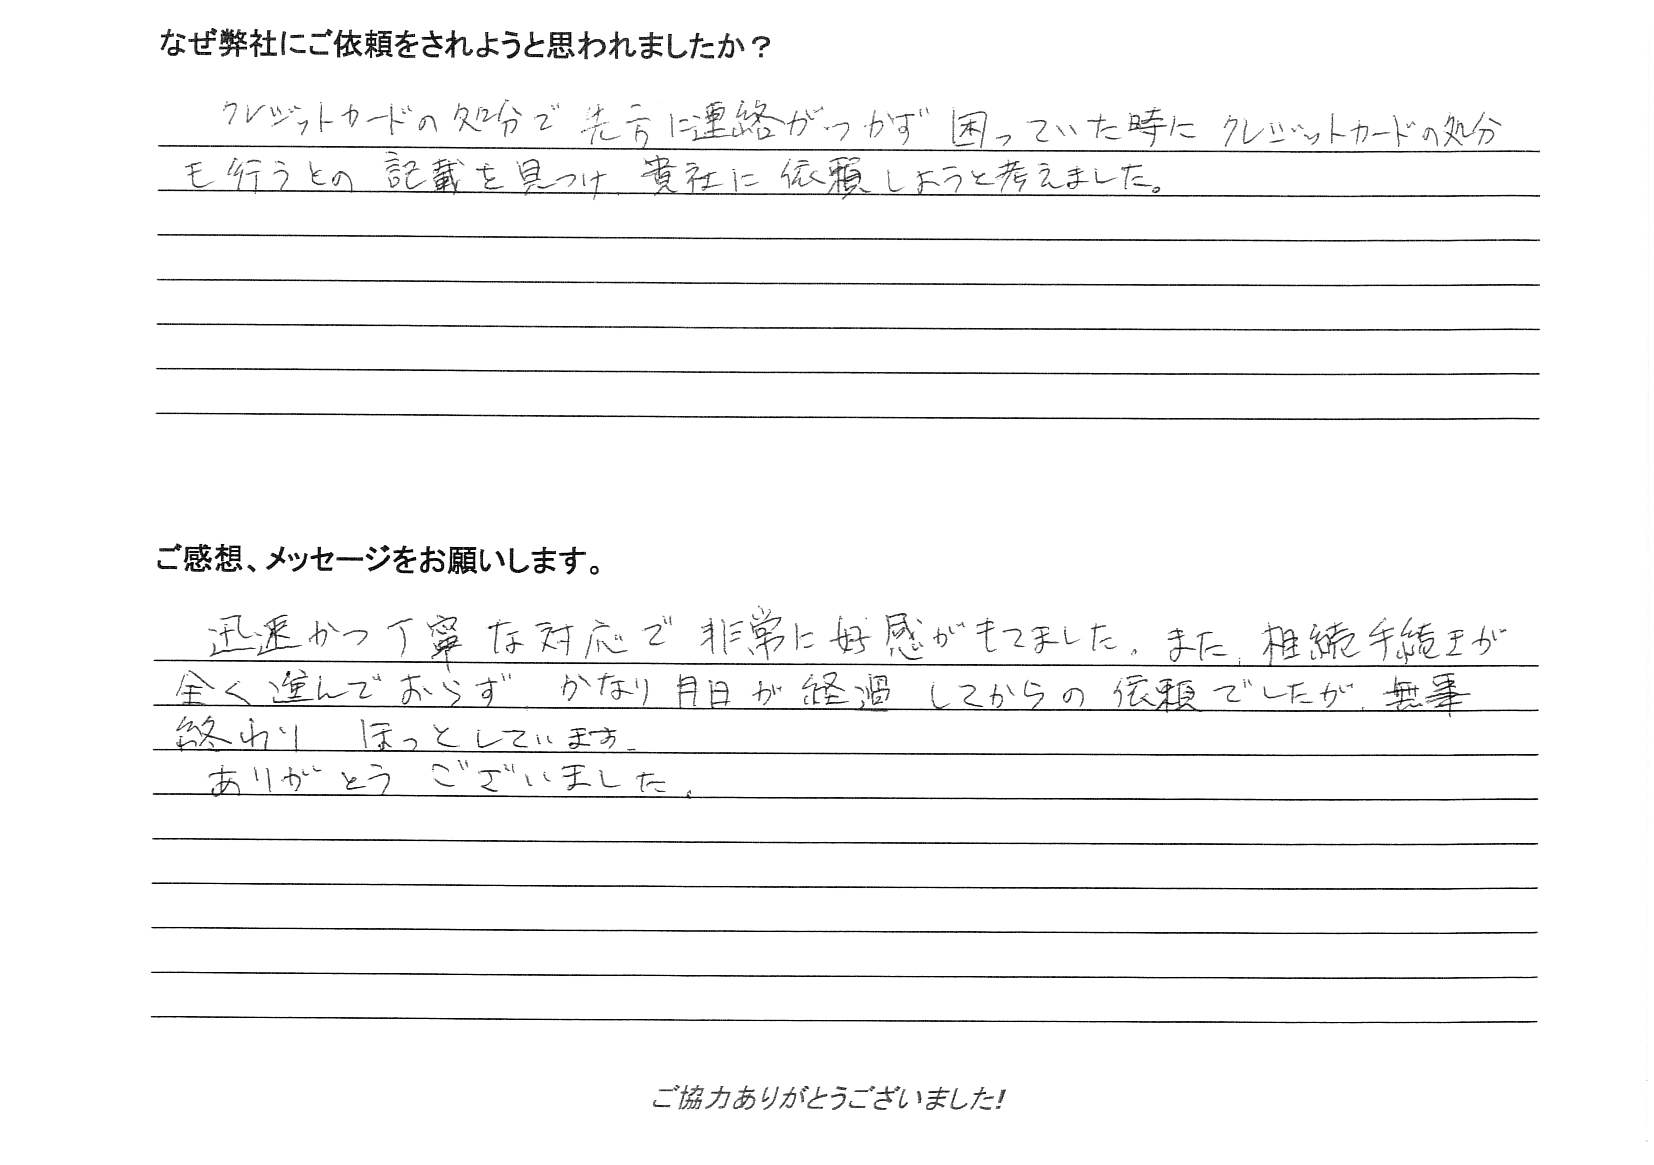 なぜ弊社にご依頼をされようと思われましたか？
クレジットカードの処分で先方に連絡がつかず困っていた時にクレジットカードの処分
も行うとの記載を見つけ、貴社に依頼しようと考えました。
ご感想、メッセージをお願いします。
迅速かつ丁寧な対応で非常に好感がもてました。また、相続手続きが
全く進んでおらず、かなり月日が経過してからの依頼でしたが、無事
終わり ほっとしています。
ありがとうございました。
ご協力ありがとうございました!